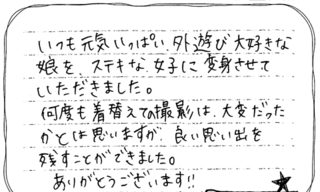 いつも元気いっぱい、外遊び大好きな
娘を、ステキな女子に変身させて
いただきました。
何度も着替えての撮影は、大変だった
かとは思いますが、良い思い出を
残すことができました。
ありがとうございます!!